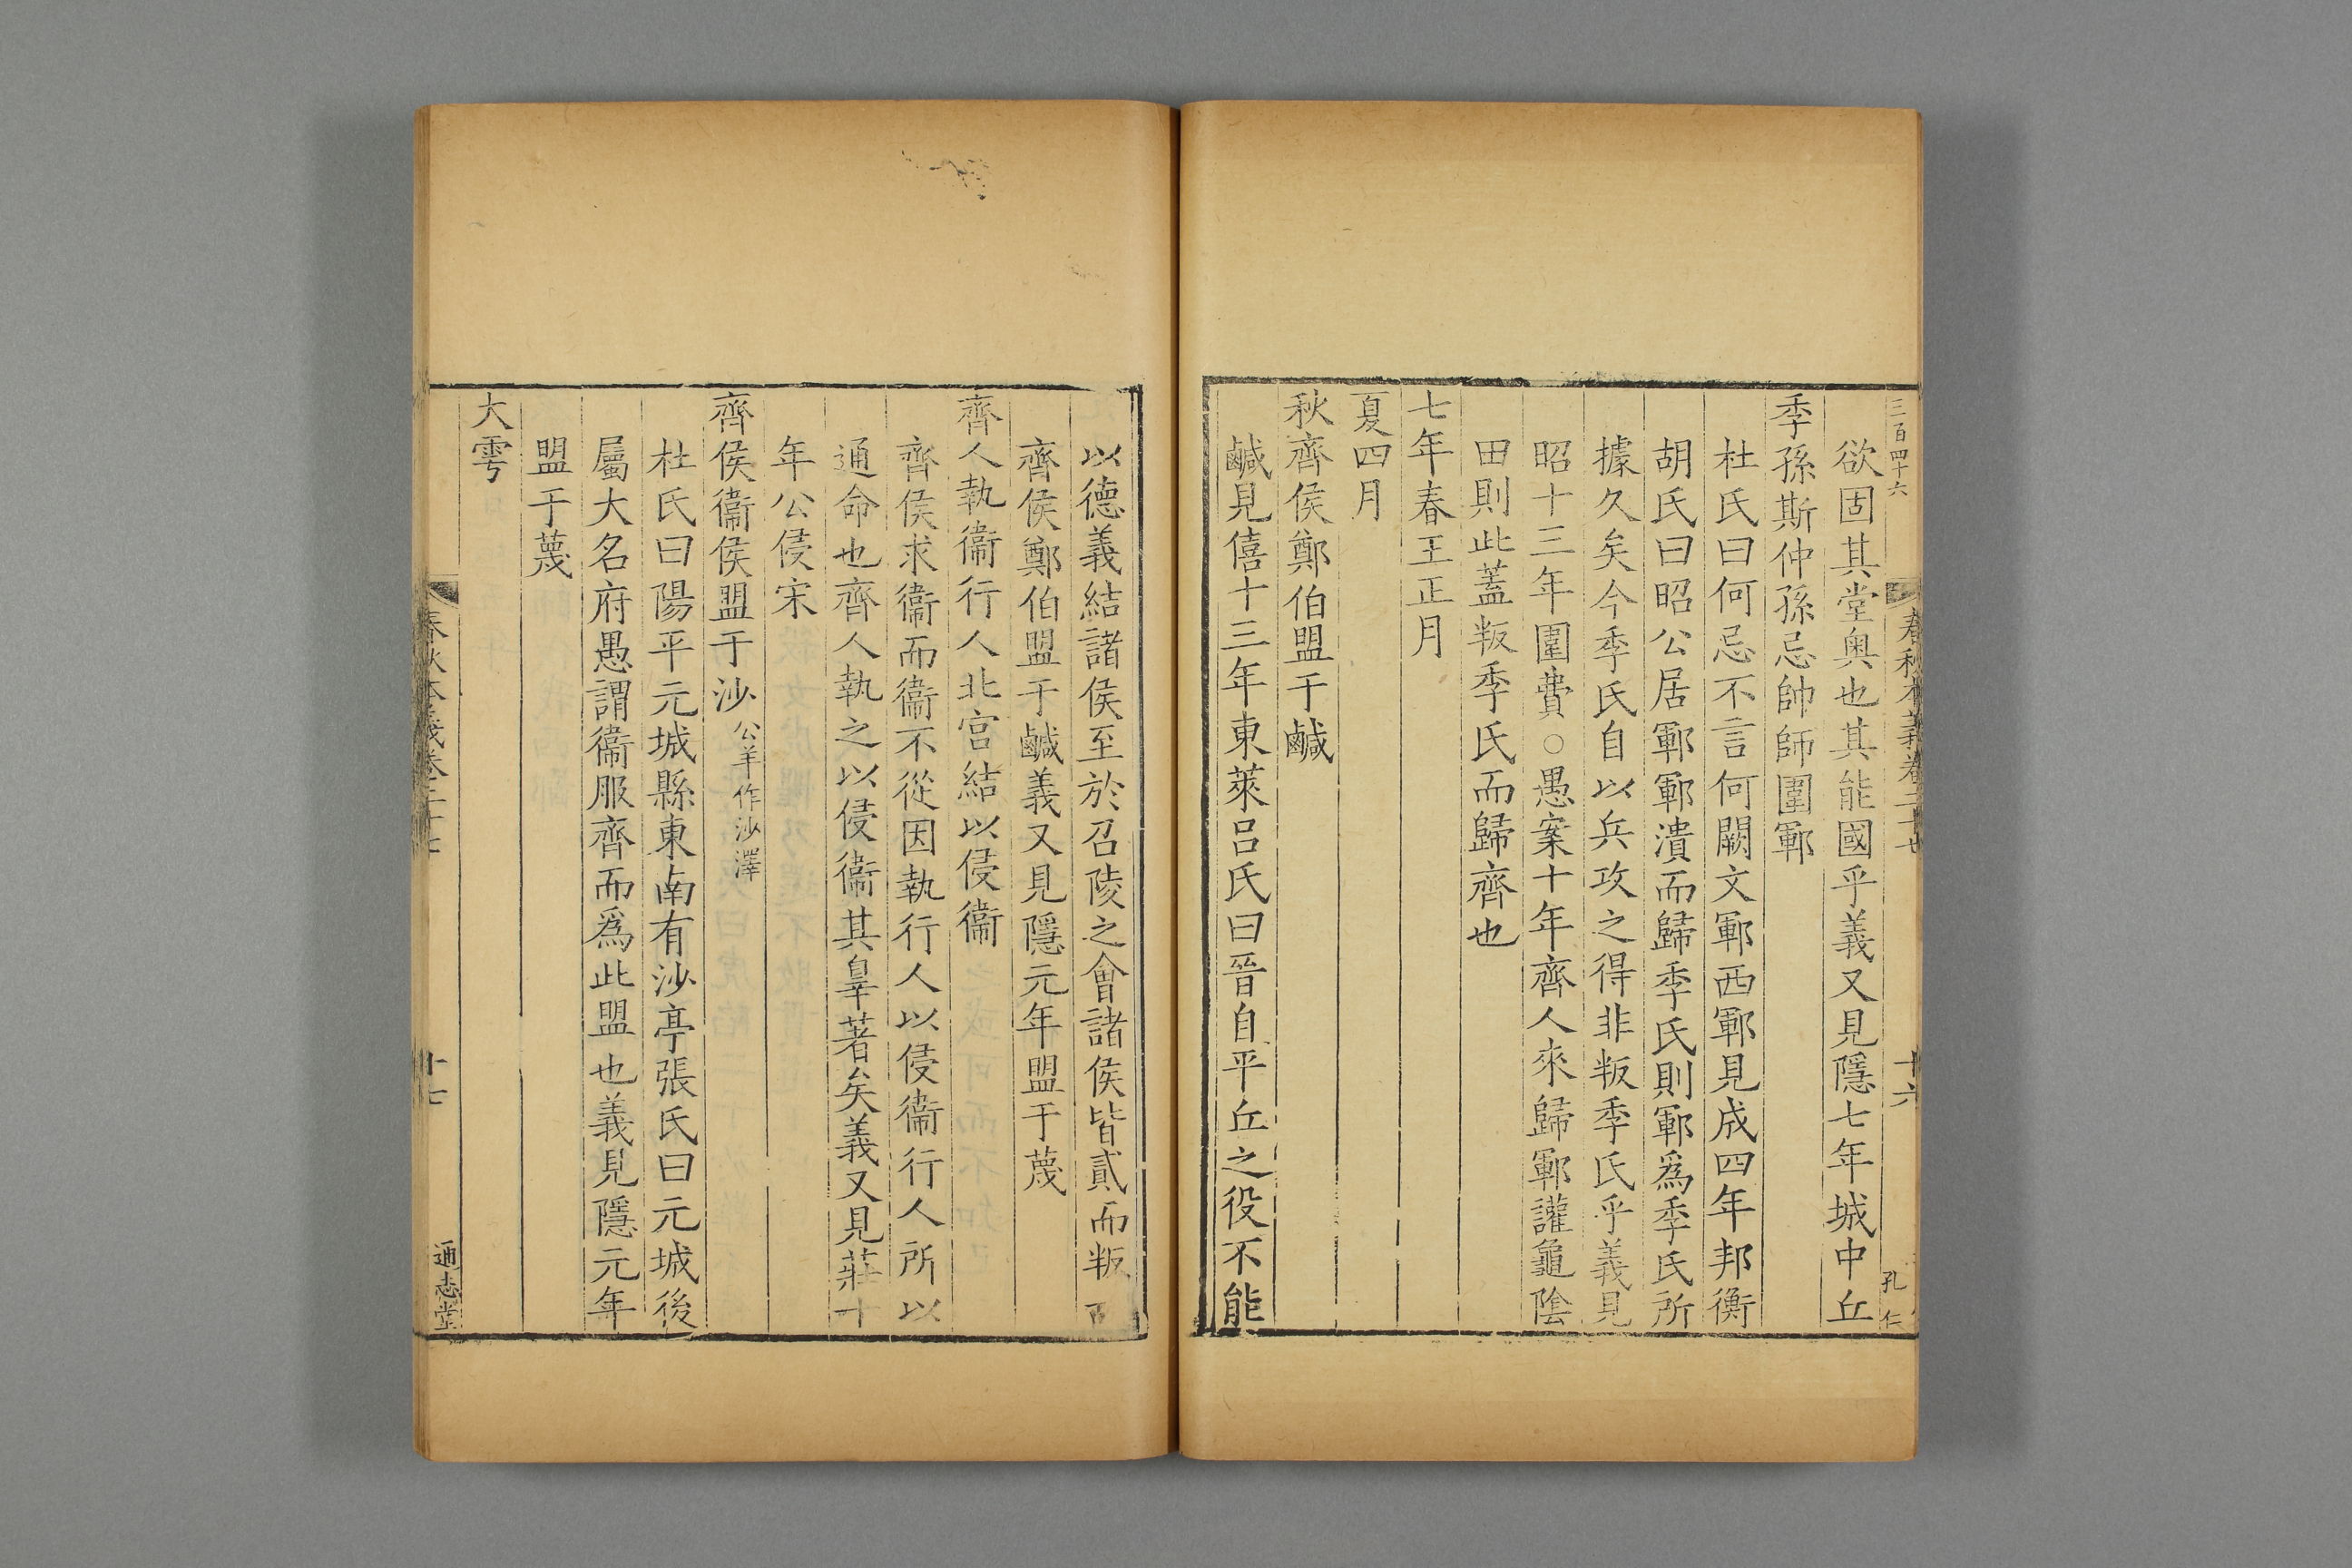 三百四十六
春秋本義卷二十七
十六
孔仁
欲固其堂奧也其能國乎義又見隱七年城中丘
季孫斯仲孫忌帥師圍鄆
杜氏曰何忌不言何闕文鄆西鄆見成四年邦衡
胡氏曰昭公居鄆鄆潰而歸季氏則鄆爲季氏所
據久矣今季氏自以兵攻之得非叛季氏乎義見
昭十三年圍費○愚案十年齊人來歸鄆讙龜陰
田則此蓋叛季氏而歸齊也
七年春王正月
夏四月
秋齊侯鄭伯盟于鹹
鹹見僖十三年東萊呂氏曰晉自平丘之役不能
以德義結諸侯至於召陵之會諸侯皆貳而叛
齊侯鄭伯盟于鹹義又見隱元年盟于蔑
齊人執衞行人北宮結以侵衞
齊侯求衞而衞不從因執行人以侵衞行人所以
通命也齊人執之以侵衞其辠著矣義又見莊十
年公侵宋
齊侯衞侯盟于沙公羊作沙澤
杜氏曰陽平元城縣東南有沙亭張氏曰元城後
屬大名府愚謂衞服齊而爲此盟也義見隱元年
盟于蔑
大雩
春秋本義卷二十七
十七
通志堂